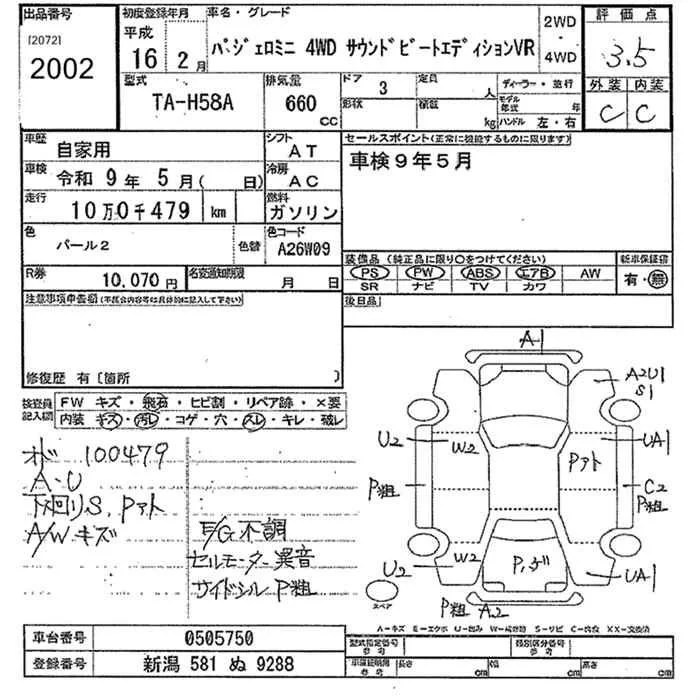 出品番号
[2072]
2002
初度登録年月
平成
16年 2月
車名・グレード
パジェロミニ 4WD サウンドビートエディションVR
2WD
・
4WD
評価点
3.5
外装 内装
C C
型式
TA-H58A
排気量
660 CC
ドア 3
形状
定員 人
積載 kg
ディーラー・並行
モデル年式 年
ハンドル 左・右
車歴
自家用
シフト
AT
車検
令和 9年 5月( 日)
冷房
AC
走行
10万0千479 km
燃料
ガソリン
色
パール2
色替
色コード
A26W09
R券
10,070円
名変通知期限
月 日
セールスポイント(正常に機能するものに限ります)
車検9年5月
装備品(純正品に限り○をつけてください)
PS PW ABS エアB AW
SR ナビ TV カワ
新車保証書
有・無
後日品
注意事項申告欄(不具合内容等は具体的に記入して下さい)
修復歴 有〔箇所 〕
検査員記入欄
FW キズ・飛石・ヒビ割・リペア跡・×要
内装 キズ・汚レ・コゲ・穴・スレ・キレ・破レ
オド 100479
A・U
下回りS、Pアト
A/Wキズ
E/G不調
セルモーター異音
サイドシルP粗
A1
A2U1
S1
U2
W2
UA1
Pアト
P粗
C2
P粗
U2
W2
UA1
P粗 A2
スペア
A−キズ E−エクボ U−凹み W−補修跡 S−サビ C−腐食 XX−交換済
車台番号
0505750
登録番号
新潟 581 ぬ 9288
型式指定番号
参考
類別区分番号
参考
車庫証明用
参考
長さ cm
幅 cm
高さ cm